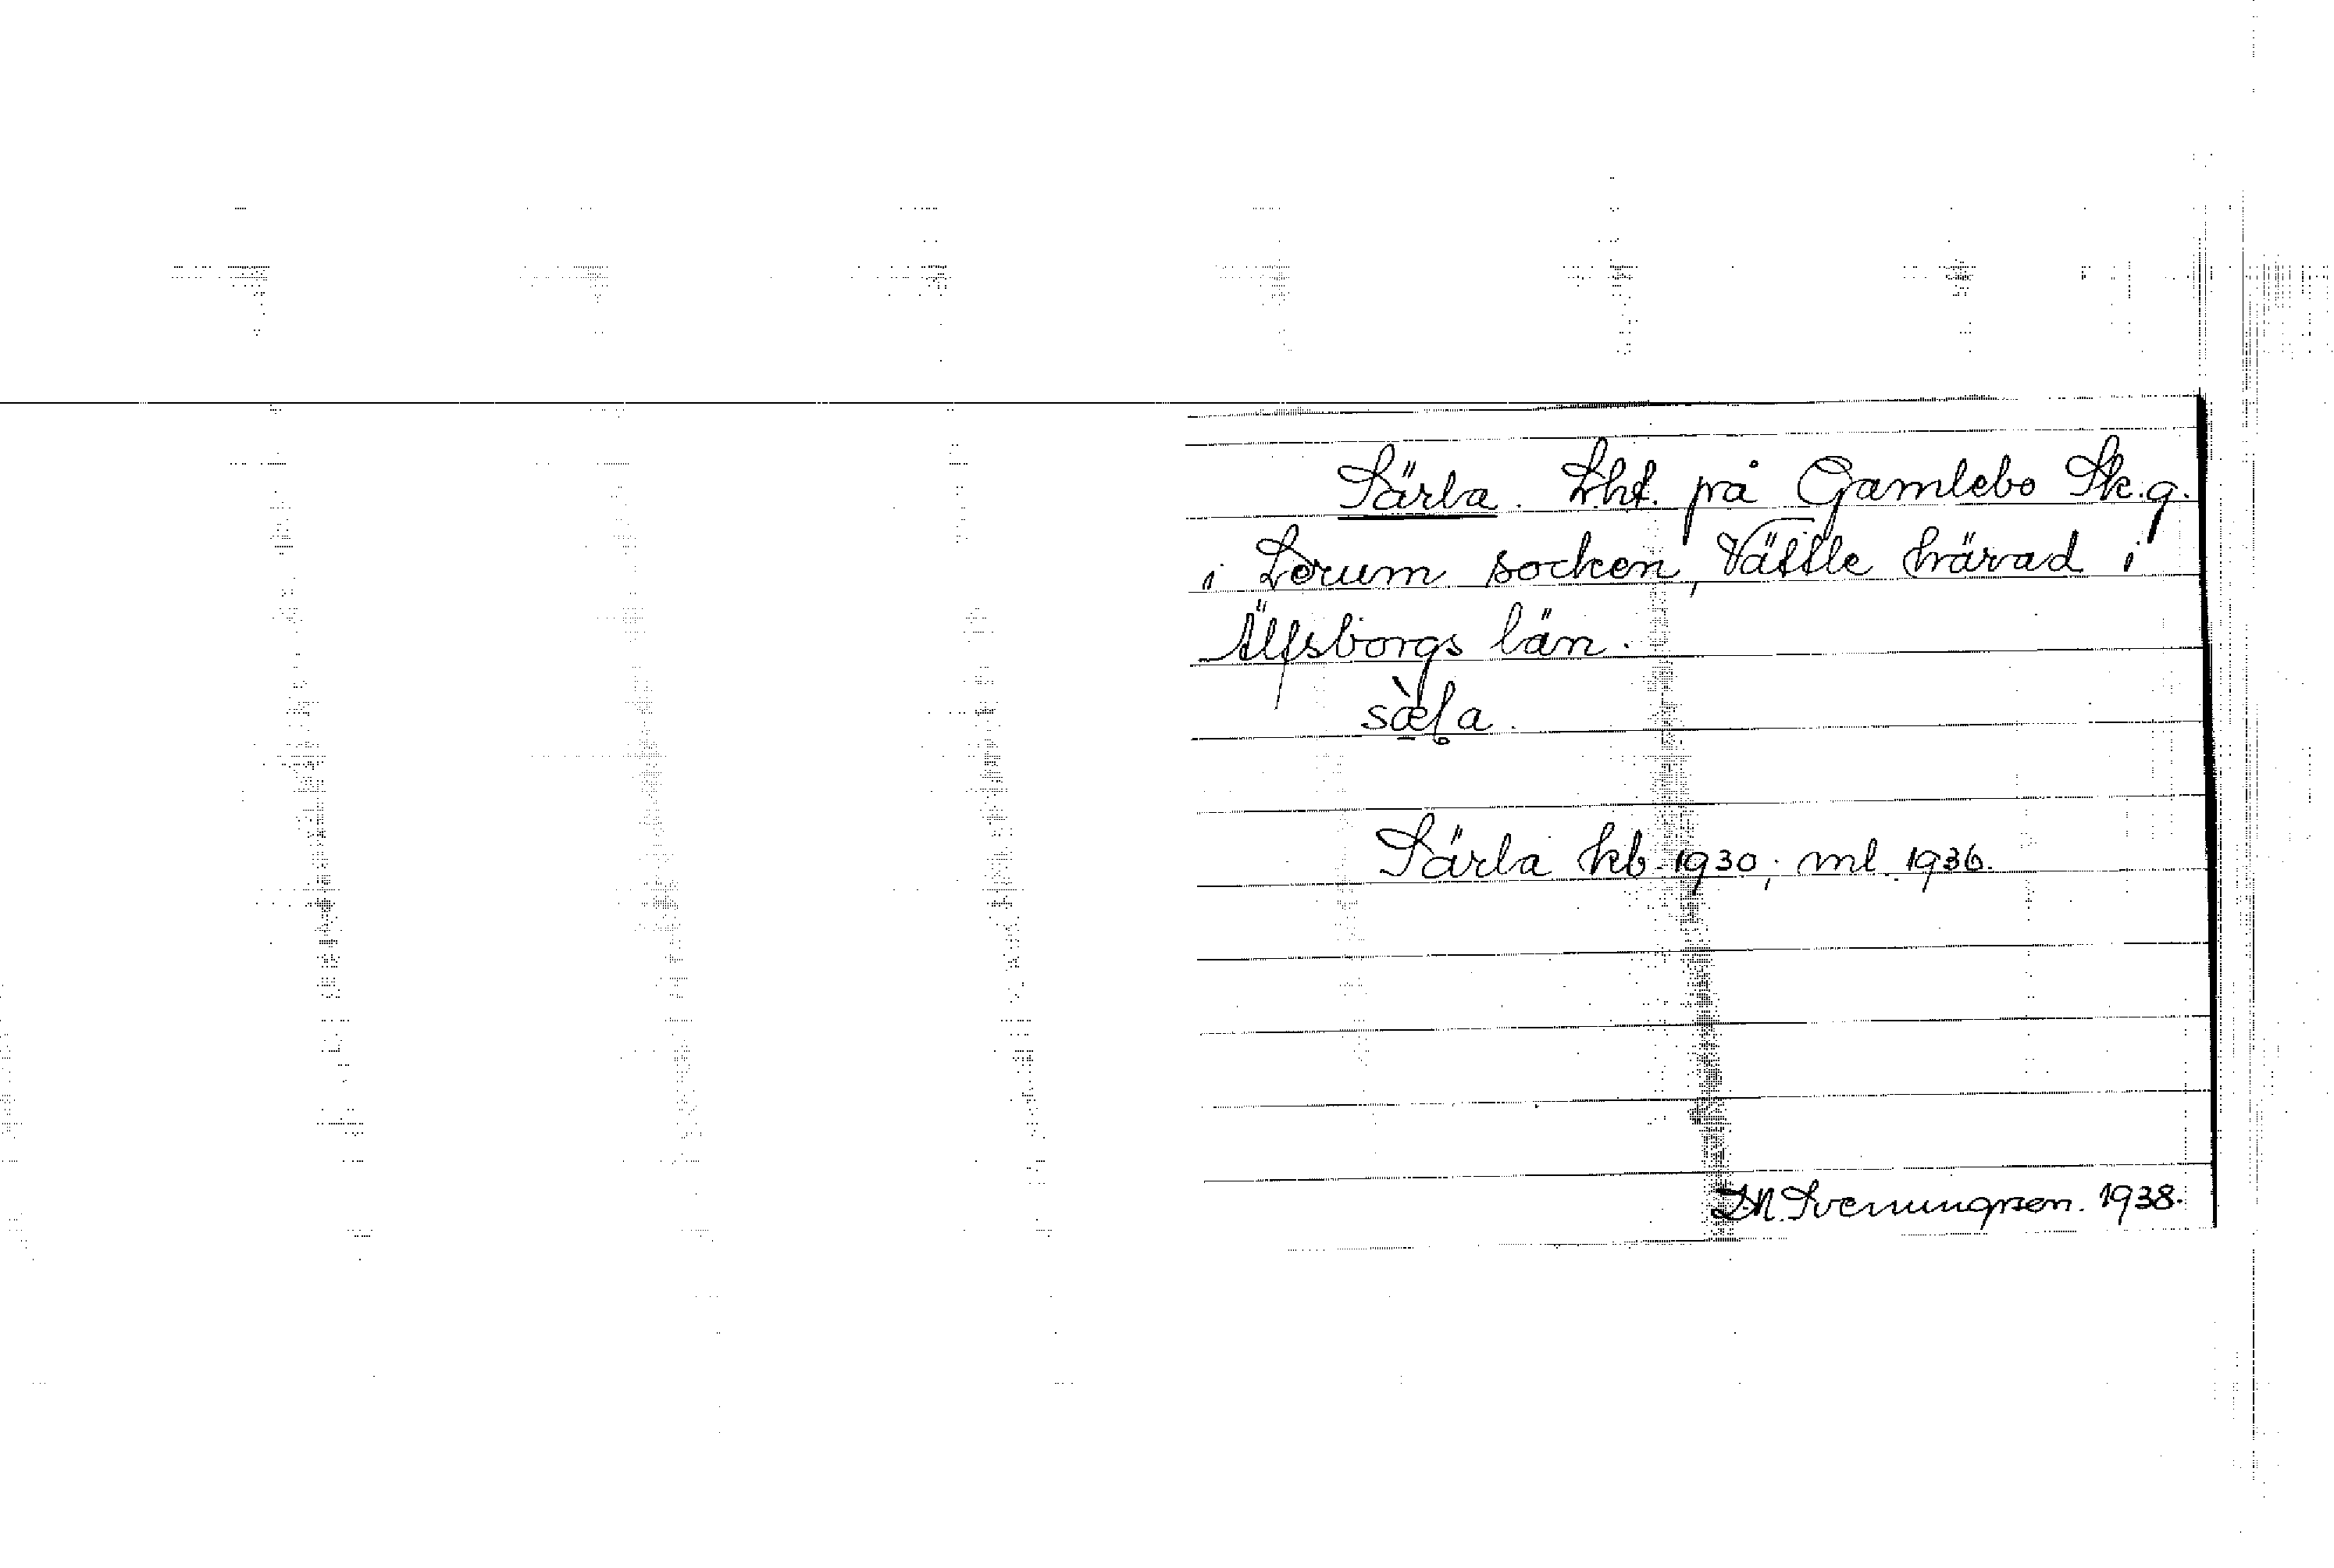 Särla. Lht. på Gamlebo Sk.g.
i Lerum socken, Vättle härad i
Älfsborgs län.
Särla kb 1930; ml. 1936.
Svenungsson. 1938.